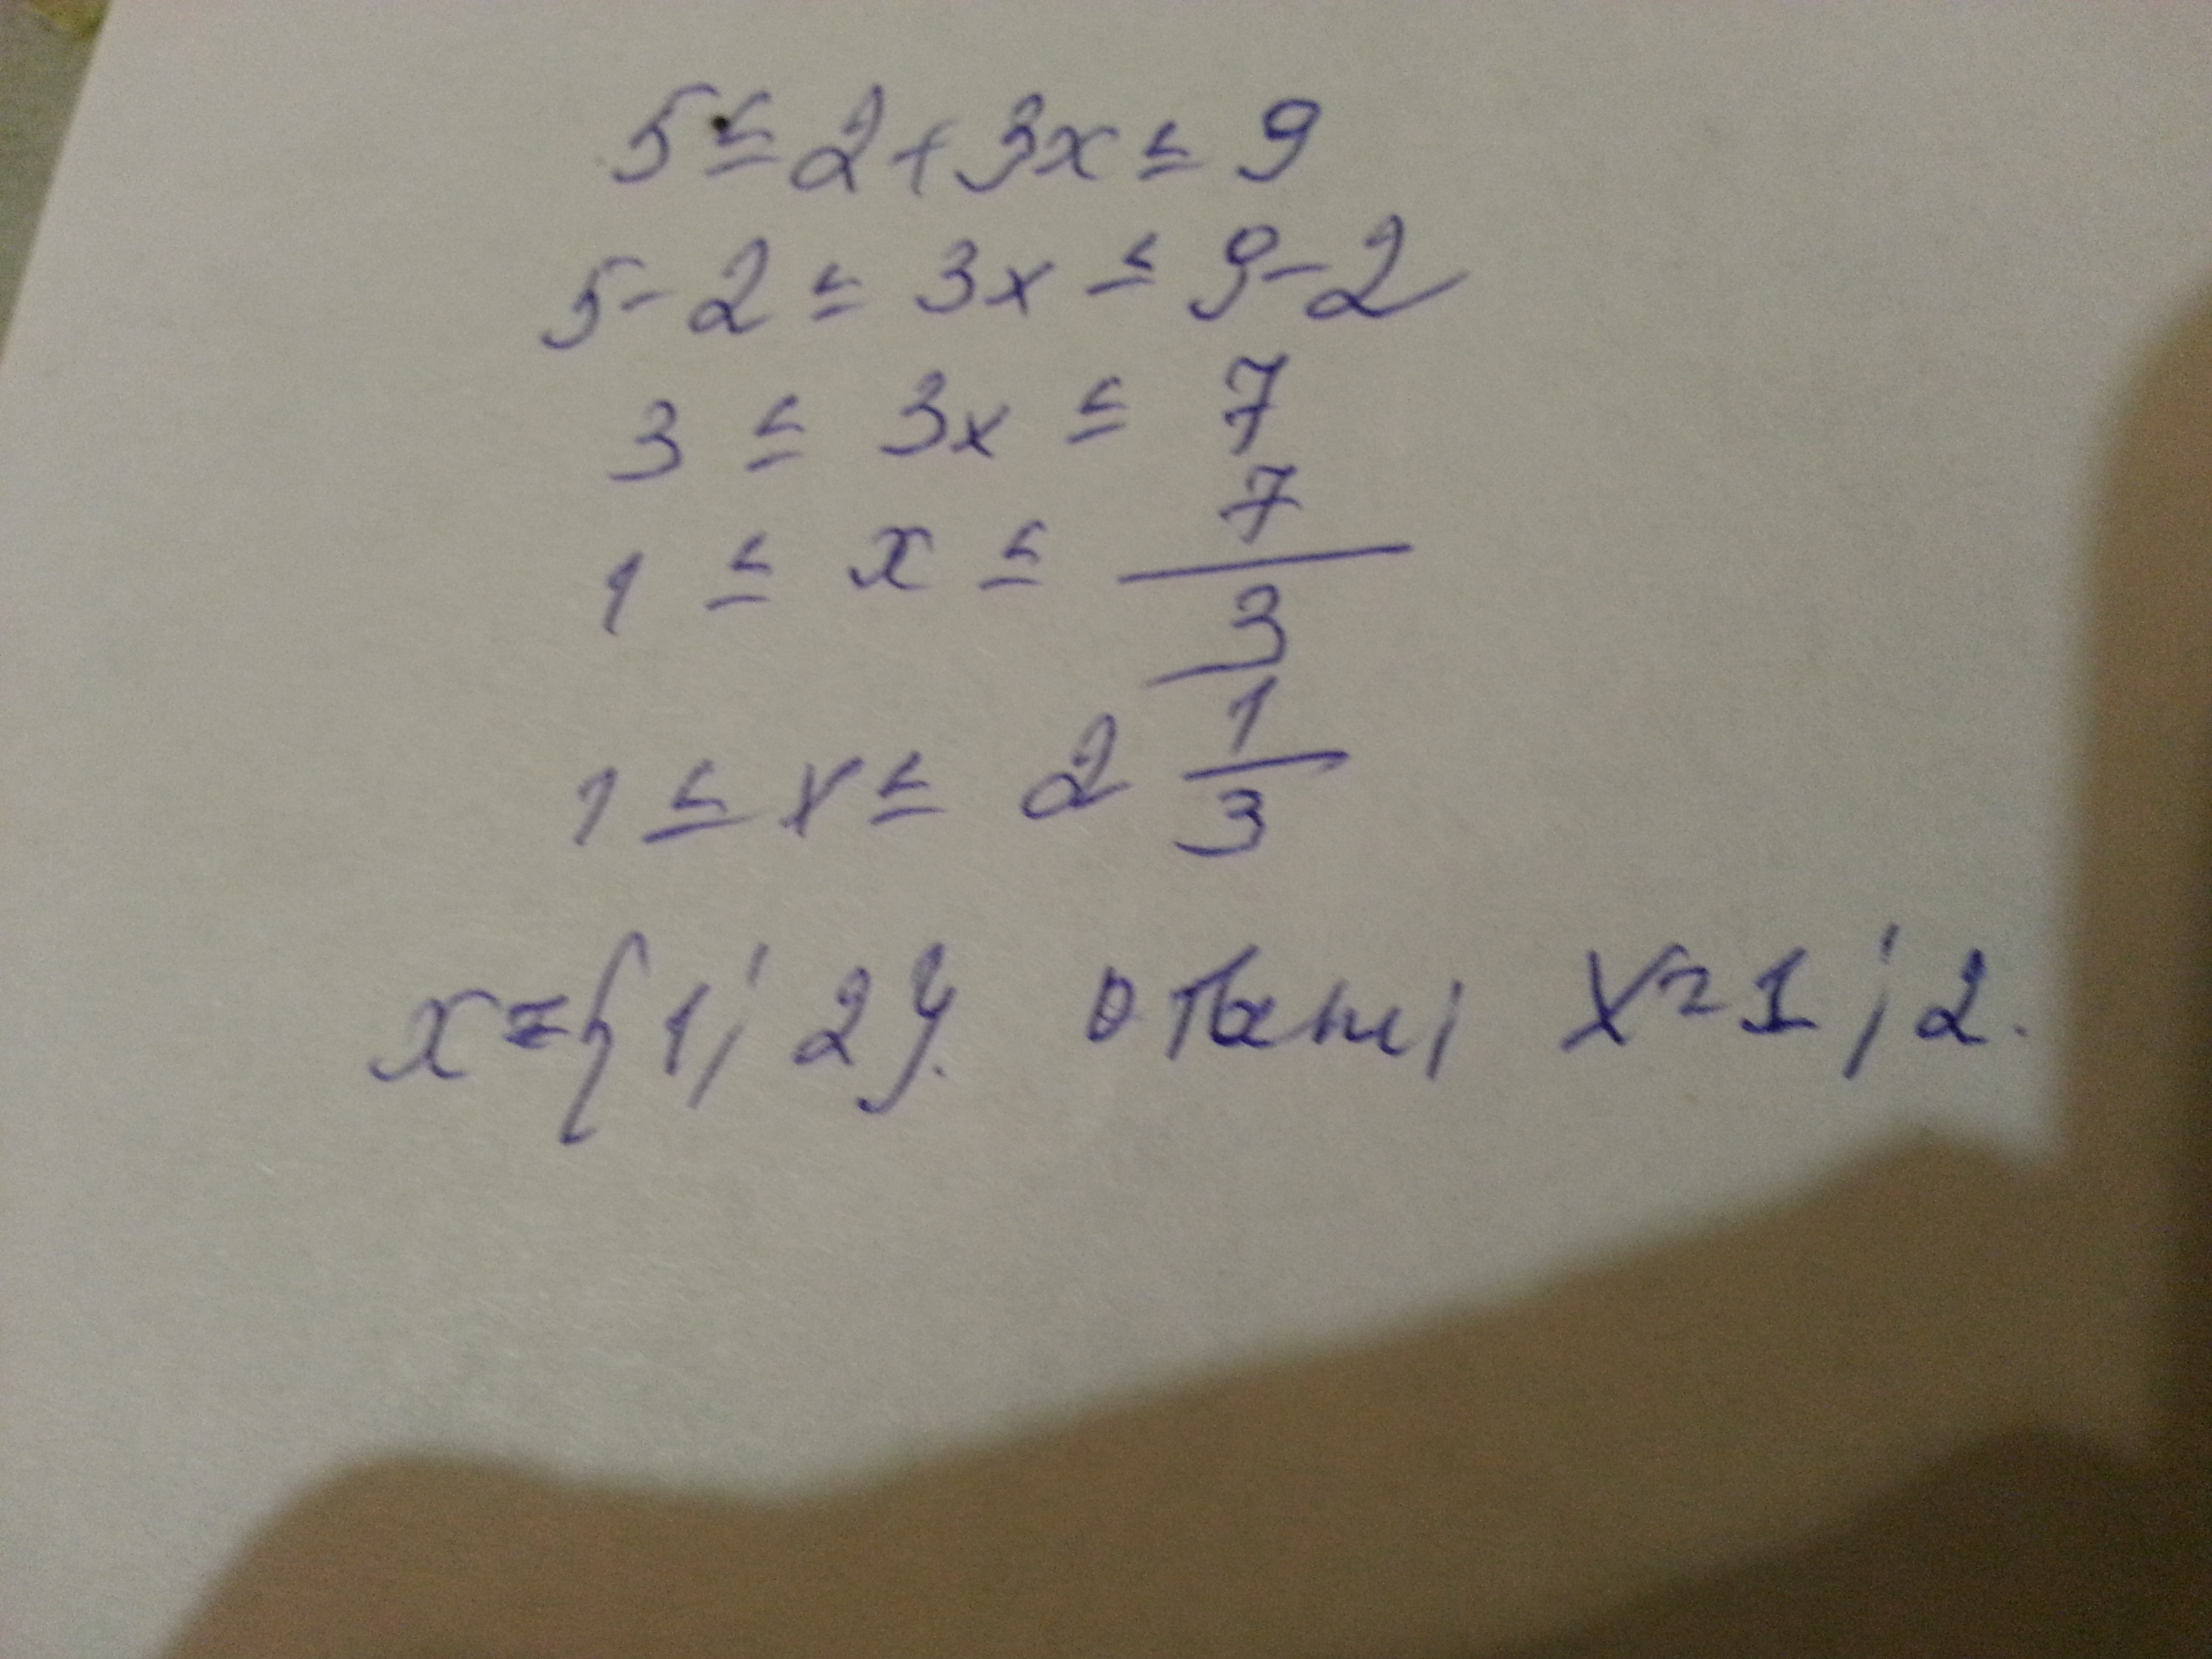 5 ≤ 2 + 3x ≤ 9
5 - 2 ≤ 3x ≤ 9 - 2
3 ≤ 3x ≤ 7
1 ≤ x ≤ 7/3
1 ≤ x ≤ 2 1/3
x = {1; 2}. x = 1; 2.